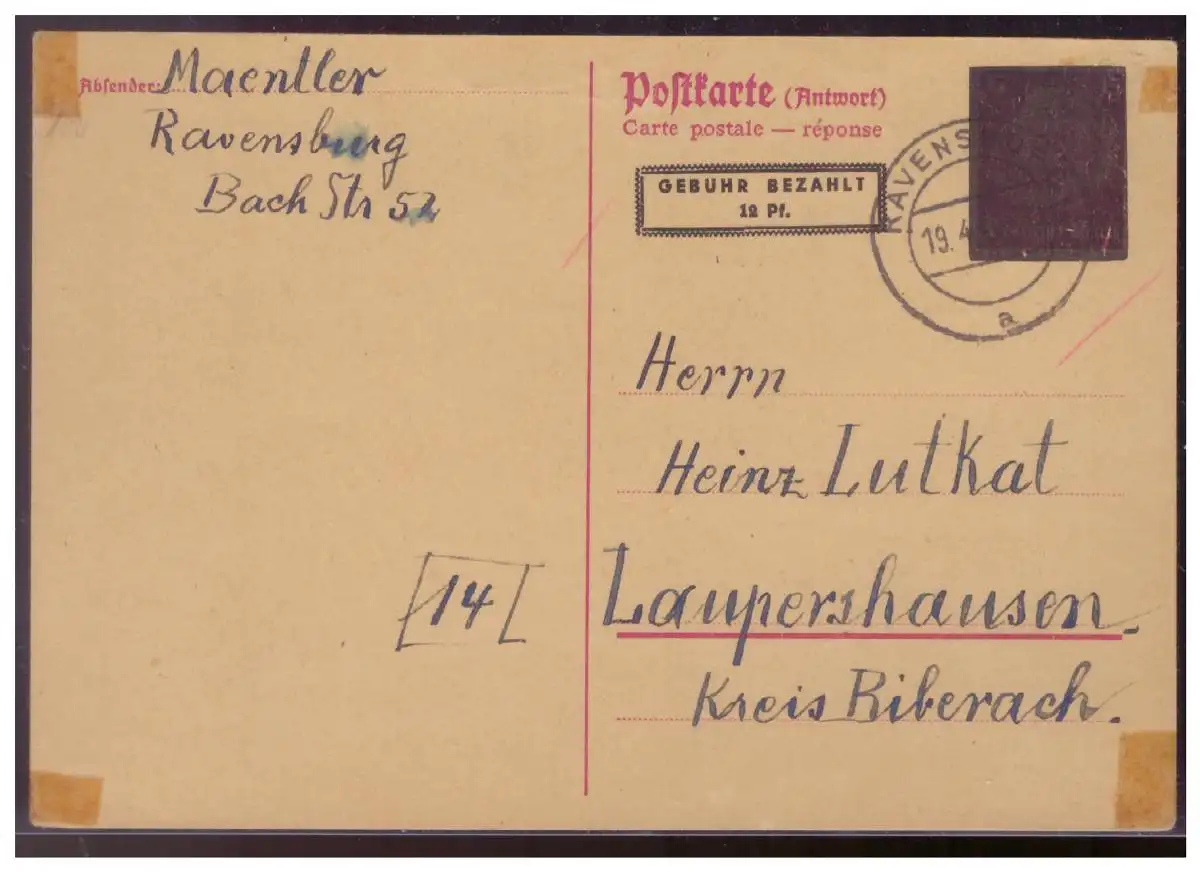 Absender: Maentler
Ravensburg
Bach Str 52
Postkarte (Antwort)
Carte postale — réponse
GEBÜHR BEZAHLT
12 Pf.
RAVENS
19. 4
a
Herrn
Heinz Lutkat
14
Laupershausen.
Kreis Biberach.